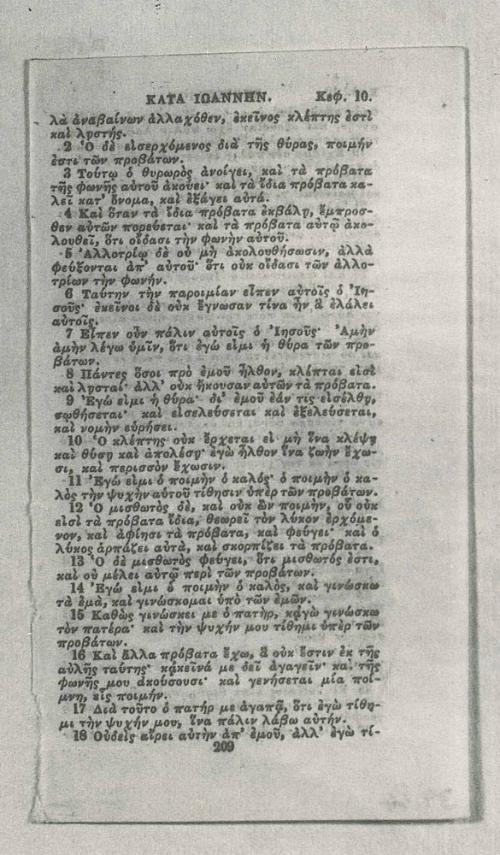 ΚΑΤΑ ΙΩΑΝΝΗΝ. Κεφ. 10.
λὰ ἀναβαίνων ἀλλαχόθεν, ἐκεῖνος κλέπτης ἐστὶ
καὶ λῃστής.
2 Ὁ δὲ εἰσερχόμενος διὰ τῆς θύρας, ποιμήν
ἐστι τῶν προβάτων.
3 Τούτῳ ὁ θυρωρὸς ἀνοίγει, καὶ τὰ πρόβατα
τῆς φωνῆς αὐτοῦ ἀκούει· καὶ τὰ ἴδια πρόβατα κα-
λεῖ κατ' ὄνομα, καὶ ἐξάγει αὐτά.
4 Καὶ ὅταν τὰ ἴδια πρόβατα ἐκβάλῃ, ἔμπροσ-
θεν αὐτῶν πορεύεται· καὶ τὰ πρόβατα αὐτῷ ἀκο-
λουθεῖ, ὅτι οἴδασι τὴν φωνὴν αὐτοῦ.
5 Ἀλλοτρίῳ δὲ οὐ μὴ ἀκολουθήσωσιν, ἀλλὰ
φεύξονται ἀπ' αὐτοῦ· ὅτι οὐκ οἴδασι τῶν ἀλλο-
τρίων τὴν φωνήν.
6 Ταύτην τὴν παροιμίαν εἶπεν αὐτοῖς ὁ Ἰη-
σοῦς· ἐκεῖνοι δὲ οὐκ ἔγνωσαν τίνα ἦν ἃ ἐλάλει
αὐτοῖς.
7 Εἶπεν οὖν πάλιν αὐτοῖς ὁ Ἰησοῦς· Ἀμὴν
ἀμὴν λέγω ὑμῖν, ὅτι ἐγώ εἰμι ἡ θύρα τῶν προ-
βάτων.
8 Πάντες ὅσοι πρὸ ἐμοῦ ἦλθον, κλέπται εἰσὶ
καὶ λῃσταί· ἀλλ' οὐκ ἤκουσαν αὐτῶν τὰ πρόβατα.
9 Ἐγώ εἰμι ἡ θύρα· δι' ἐμοῦ ἐάν τις εἰσέλθῃ,
σωθήσεται· καὶ εἰσελεύσεται καὶ ἐξελεύσεται,
καὶ νομὴν εὑρήσει.
10 Ὁ κλέπτης οὐκ ἔρχεται εἰ μὴ ἵνα κλέψῃ
καὶ θύσῃ καὶ ἀπολέσῃ· ἐγὼ ἦλθον ἵνα ζωὴν ἔχω-
σι, καὶ περισσὸν ἔχωσιν.
11 Ἐγώ εἰμι ὁ ποιμὴν ὁ καλός· ὁ ποιμὴν ὁ κα-
λὸς τὴν ψυχὴν αὐτοῦ τίθησιν ὑπὲρ τῶν προβάτων.
12 Ὁ μισθωτὸς δὲ, καὶ οὐκ ὢν ποιμὴν, οὗ οὐκ
εἰσὶ τὰ πρόβατα ἴδια, θεωρεῖ τὸν λύκον ἐρχόμε-
νον, καὶ ἀφίησι τὰ πρόβατα, καὶ φεύγει· καὶ ὁ
λύκος ἁρπάζει αὐτὰ, καὶ σκορπίζει τὰ πρόβατα.
13 Ὁ δὲ μισθωτὸς φεύγει, ὅτι μισθωτός ἐστι,
καὶ οὐ μέλει αὐτῷ περὶ τῶν προβάτων.
14 Ἐγώ εἰμι ὁ ποιμὴν ὁ καλὸς, καὶ γινώσκω
τὰ ἐμὰ, καὶ γινώσκομαι ὑπὸ τῶν ἐμῶν.
15 Καθὼς γινώσκει με ὁ πατὴρ, κἀγὼ γινώσκω
τὸν πατέρα· καὶ τὴν ψυχήν μου τίθημι ὑπὲρ τῶν
προβάτων.
16 Καὶ ἄλλα πρόβατα ἔχω, ἃ οὐκ ἔστιν ἐκ τῆς
αὐλῆς ταύτης· κἀκεῖνά με δεῖ ἀγαγεῖν· καὶ τῆς
φωνῆς μου ἀκούσουσι· καὶ γενήσεται μία ποί-
μνη, εἷς ποιμήν.
17 Διὰ τοῦτο ὁ πατήρ με ἀγαπᾷ, ὅτι ἐγὼ τίθη-
μι τὴν ψυχήν μου, ἵνα πάλιν λάβω αὐτήν.
18 Οὐδεὶς αἴρει αὐτὴν ἀπ' ἐμοῦ, ἀλλ' ἐγὼ τί-
209